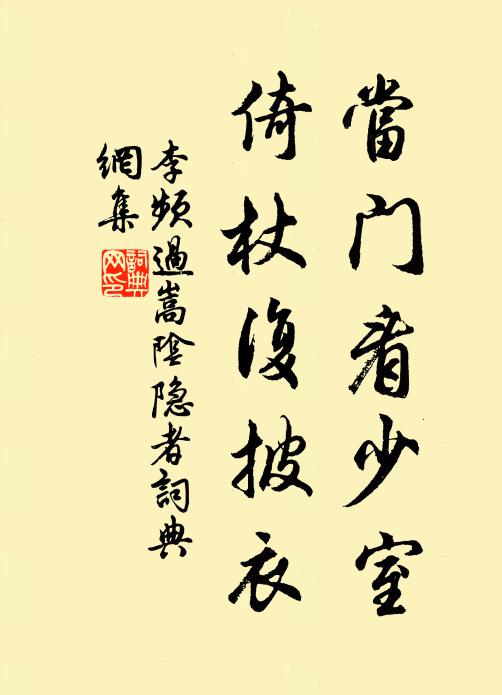 當門看少室
倚杖復披衣
李頻過嵩陰隐者詞典
網集
詞典網印